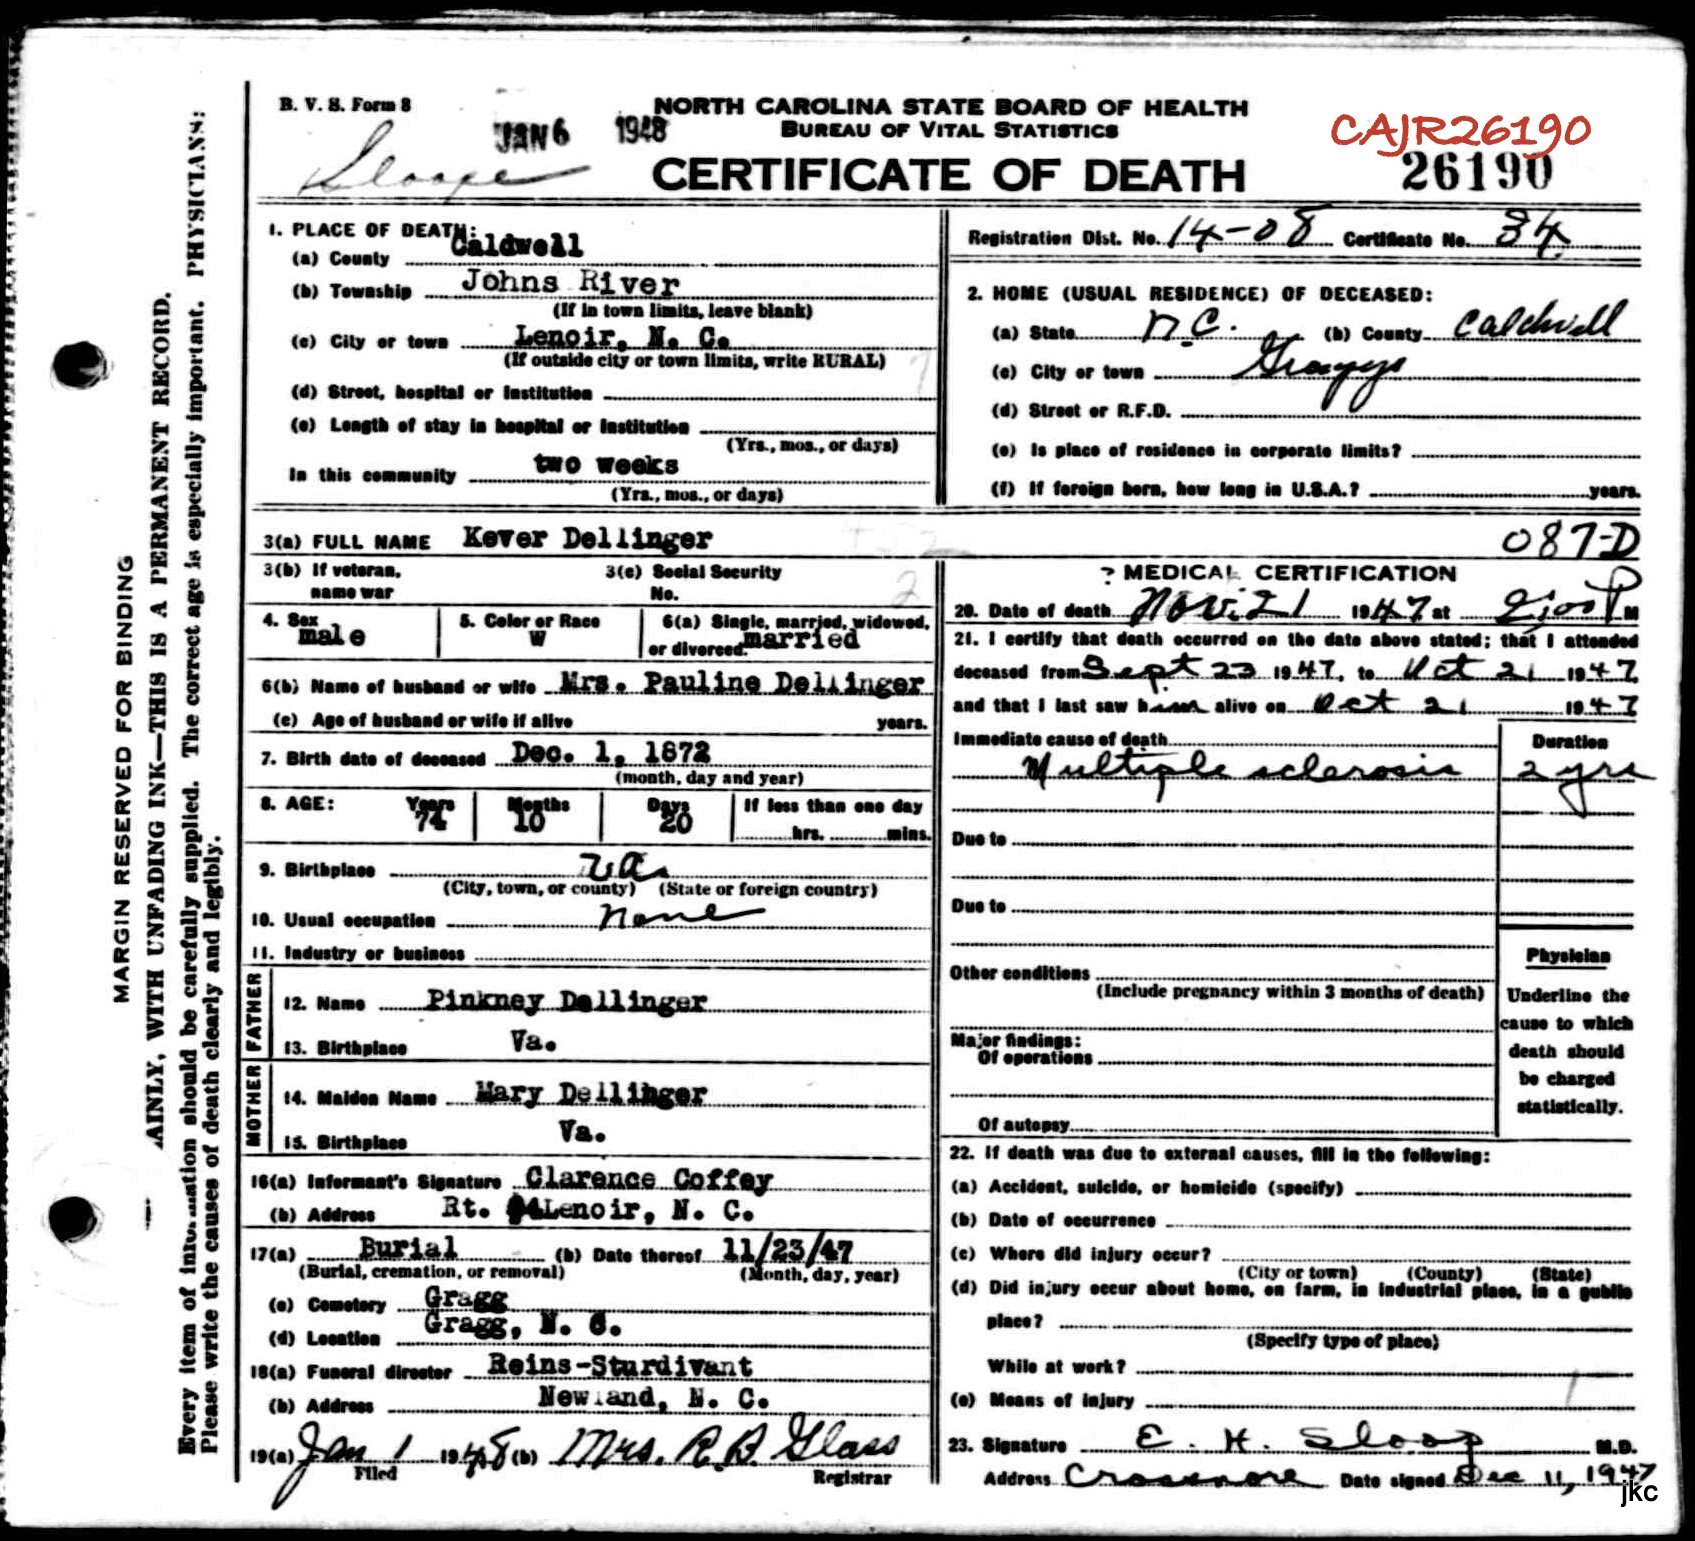 B. V. S. Form 8
JAN 6 1948
NORTH CAROLINA STATE BOARD OF HEALTH
BUREAU OF VITAL STATISTICS
CERTIFICATE OF DEATH
CAJR26190
26190
1. PLACE OF DEATH:
(a) County Caldwell
(b) Township Johns River
(If in town limits, leave blank)
(c) City or town Lenoir, N. C.
(If outside city or town limits, write RURAL)
(d) Street, hospital or institution
(e) Length of stay in hospital or institution
(Yrs., mos., or days)
In this community two weeks
(Yrs., mos., or days)
Registration Dist. No. 14-08 Certificate No. 34
2. HOME (USUAL RESIDENCE) OF DECEASED:
(a) State N.C. (b) County Caldwell
(c) City or town
(d) Street or R.F.D.
(e) Is place of residence in corporate limits?
(f) If foreign born, how long in U.S.A.? years.
3(a) FULL NAME Kever Dellinger
087-D
3(b) If veteran, name war
3(c) Social Security No.
4. Sex male
5. Color or Race W
6(a) Single, married, widowed, or divorced married
6(b) Name of husband or wife Mrs. Pauline Dellinger
(c) Age of husband or wife if alive years.
7. Birth date of deceased Dec. 1, 1872
(month, day and year)
8. AGE: Years 74 Months 10 Days 20 If less than one day
hrs. mins.
9. Birthplace Va.
(City, town, or county) (State or foreign country)
10. Usual occupation none
11. Industry or business
FATHER
12. Name Pinkney Dellinger
13. Birthplace Va.
MOTHER
14. Maiden Name Mary Dellinger
15. Birthplace Va.
16(a) Informant's Signature Clarence Coffey
(b) Address Rt. #4 Lenoir, N. C.
17(a) Burial (b) Date thereof 11/23/47
(Burial, cremation, or removal) (Month, day, year)
(c) Cemetery Gragg
(d) Location Gragg, N. C.
18(a) Funeral director Reins-Sturdivant
(b) Address Newland, N. C.
19(a) Jan 1 1948 (b) Mrs. R. B. Glass
Filed Registrar
? MEDICAL CERTIFICATION
20. Date of death Nov. 21 1947 at 2:00 P M
21. I certify that death occurred on the date above stated; that I attended
deceased from Sept 23 1947, to Oct 21 1947,
and that I last saw him alive on Oct 21 1947
Immediate cause of death Duration
Multiple sclerosis 2 yrs
Due to
Due to
Other conditions
(Include pregnancy within 3 months of death)
Major findings:
Of operations
Of autopsy
Physician
Underline the
cause to which
death should
be charged
statistically.
22. If death was due to external causes, fill in the following:
(a) Accident, suicide, or homicide (specify)
(b) Date of occurrence
(c) Where did injury occur?
(City or town) (County) (State)
(d) Did injury occur about home, on farm, in industrial place, in a public
place?
(Specify type of place)
While at work?
(e) Means of injury
23. Signature E. H. Sloop M.D.
Address Crossnore Date signed Dec 11, 1947
jkc
MARGIN RESERVED FOR BINDING
AINLY, WITH UNFADING INK—THIS IS A PERMANENT RECORD.
Every item of information should be carefully supplied. The correct age is especially important. PHYSICIANS:
Please write the causes of death clearly and legibly.